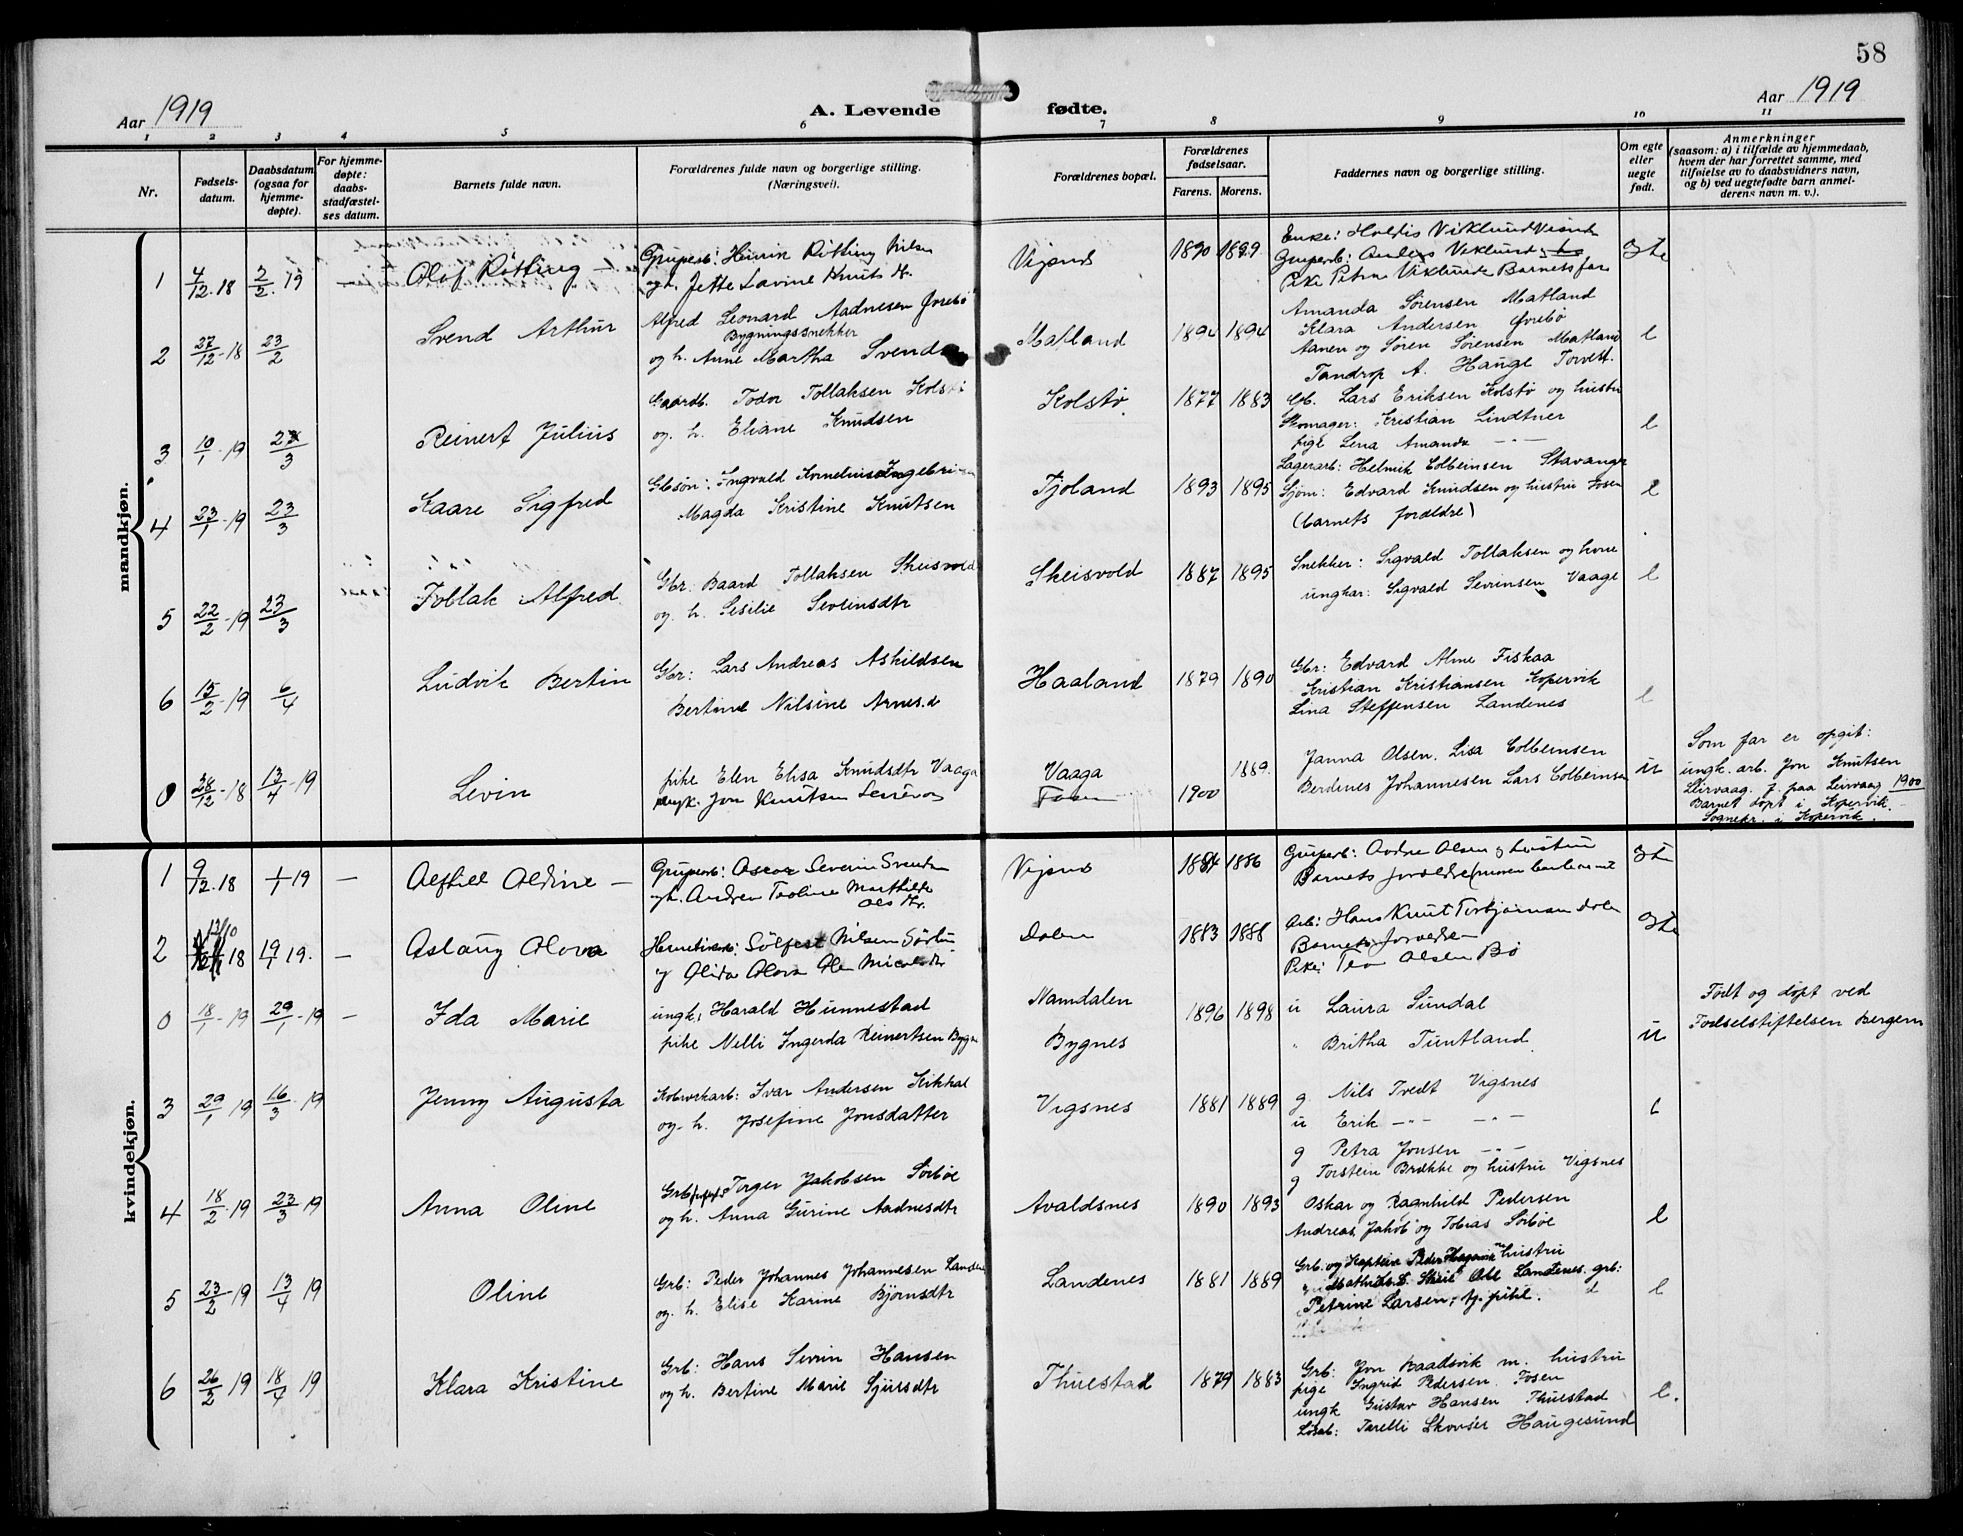 58
Aar 1919
A. Levende fødte.
Aar 1919
1 2 3 4 5 6 7 8 9 10 11
Nr.
Fødsels-
datum.
Daabsdatum
(ogsaa for
hjemme-
døpte).
For hjemme-
døpte:
daabs-
stadfæstel-
ses datum.
Barnets fulde navn.
Forældrenes fulde navn og borgerlige stilling.
(Næringsvei).
Forældrenes bopæl.
Forældrenes
fødselsaar.
Farens. Morens.
Faddernes navn og borgerlige stilling.
Om egte
eller
uegte
født.
Anmerkninger
(saasom: a) i tilfælde av hjemmedaab,
hvem der har forrettet samme, med
tilføielse av to daabsvidners navn,
og b) ved uegtefødte barn anmel-
derens navn m. v.).
mandkjøn.
1 4/12-18 2/2-19 Olof Rötting
Gruperb: Henrik Rötting Nilsen
og h. Jette Lavine Knuts dt.
Vigsnes 1890
Pike Petra Viklund Barnets far
2 27/12-18 23/2 Svend Arthur
Alfred Leonard Aadnesen Ørebø
Bygningssnekker
og h. Anne Martha Svends
Matland 1894 1894
Amanda Sørensen Matland
Klara Andersen Ørebø
Aanen og Søren Sørensen Matland
Tandrop A. Hauge Torvest.
l
3 10/1-19 23/3 Reinert Julius
Gaardb. Todor Tollaksen Kolstø
og h. Eliane Knudsen
Kolstø 1877 1883
Gb. Lars Eriksen Kolstø og hustru
Skomager: Kristian Lindtner
pige Lena Amanda -"-
l
4 23/1-19 23/3 Kaare Sigfred
Gbsøn: Ingvald Kornelius Ingebrigtsen
Magda Kristine Knutsen
Tjoland 1893 1895
Lagerarb: Helmik Colbeinsen Stavanger
Sjøm: Edvard Knudsen og hustru Fosen
(barnets forældre)
l
5 22/2-19 23/3 Tollak Alfred
Gbr. Baard Tollaksen Skeisvold
og h. Sesilie Sevrinsdtr
Skeisvold 1887 1895
Snekker: Sigvald Tollaksen og hone
ungkar: Sigvald Sevrinsen Vaage
l
6 15/2-19 6/4 Ludvik Bertin
Gbr: Lars Andreas Askildsen
Bertine Nilsine Arnes.d
Haaland 1879 1890
Gbr: Edvard Alne Fiskaa
Kristian Kristiansen Kopervik
Lina Steffensen Landenes
l
0 28/12-18 13/4-19 Levin
pike Elen Elisa Knudsdtr Vaaga
ungk. Jon Knutsen
Vaaga
Fosen
1900 1889.
Janna Olsen. Lisa Colbeinsen
Berdines Johannesen Lars Colbeinsen
u
Som far er opgit:
ungk. arb. Jon Knutsen
Leirvaag f. paa Leirvaag 1900
Barnet døpt i Kopervik.
Sognepr. i Kopervik.
kvindekjøn.
1 9/12-18 1/1 19 — Alfhild Aldine —
Gruperb: Oscar Severin Svendsen
og h. Andrea Teoline Marthilde
Ols dtr.
Vigsnes 1884 1886
Gruperb: Andre Olsen og hustru
2 18 19/1 19. — Aslaug Olova
Sölfest Nilsen Sørlie
Dalen 1883 1888
Arb: Hans Knut Torbjörnsen Dalen
Barnets forældre
Pike: Tea Olsen Bø
0 18/1-19 29/1-19 — Ida Marie
ungk, Harald Hunnestad
pike Nelli Ingerda Reinertsen Bygn
Namdalen
Bygnes
1896 1898
u Laura Sundal
" Britha Tuntland
u
Født og døpt ved
Fødselstiftelsen Bergen
3 29/1 19 16/3-19 Jenny Augusta
Kobverkarb: Ivar Andersen Kikhal
og h. Josefine Jonsdatter
Vigsnes 1881 1889
g Nils Tvedt Vigsnes
u Erik -"- -"-
g Petra Jonsen -"-
g Torstein Brække og hustru Vigsnes
l
4 18/2-19 23/3 19 Anna Oline
Torger Jakobsen Sørbøe
og h. Anna Gurine Aadnesdtr
Avaldsnes 1890 1893
Oskar og Ragnhild Pedersen
Andreas, Jakob og Tobias Sörböe
l
5 23/2-19 13/4 19 Oline
Grb: Peder Johannes Johannesen Landenes
og h. Elise Karine Bjørnsdtr
Landenes 1881 1889
Grb. og Kaptein Peder Hagaine hustru
Petrine Larsen, tj. pike.
l
6 26/2 19 18/4 19 Klara Kristine
Grb: Hans Sevrin Hansen
og h. Bertine Marie Sjursdtr
Thuestad 1879 1883
Grb: Jon Baadsvik m. hustru
pige Ingrid Pedersen Fosen
ungk Gustav Hansen Thuestad
Haugesund
l.